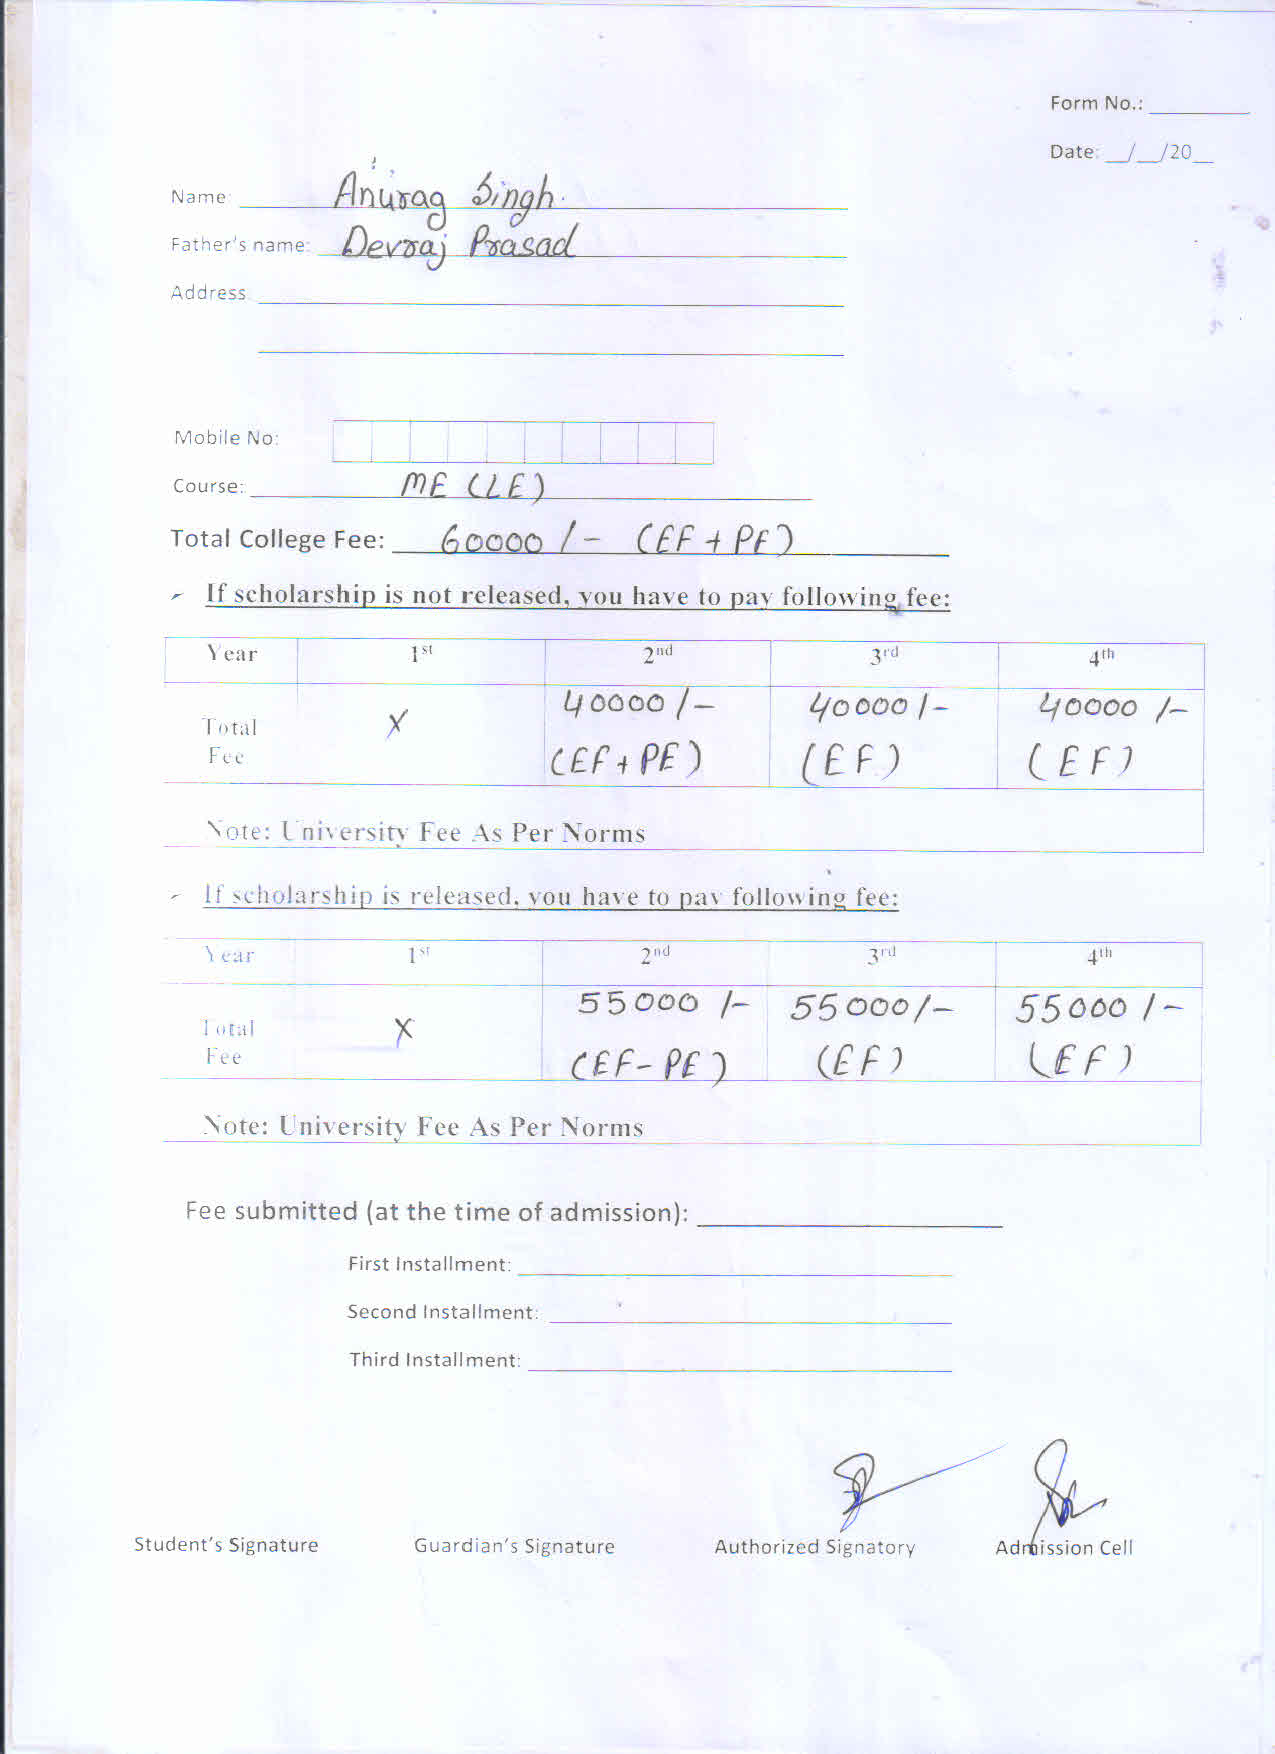 Form No.:
Date: __/__/20__
Name: Anurag Singh
Father's name: Devraj Prasad
Address:
Mobile No:
Course: ME (LE)
Total College Fee: 60000/- (EF + PF)
If scholarship is not released, you have to pay following fee:
Year 1st 2nd 3rd 4th
Total Fee X 40000/- (EF + PF) 40000/- (EF) 40000/- (EF)
Note: University Fee As Per Norms
If scholarship is released, you have to pay following fee:
Year 1st 2nd 3rd 4th
Total Fee X 55000/- (EF- PF) 55000/- (EF) 55000/- (EF)
Note: University Fee As Per Norms
Fee submitted (at the time of admission):
First Installment:
Second Installment:
Third Installment:
Student's Signature Guardian's Signature Authorized Signatory Admission Cell